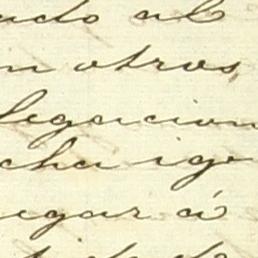 ndo al
n otros,
legacion
cha ige
egar á